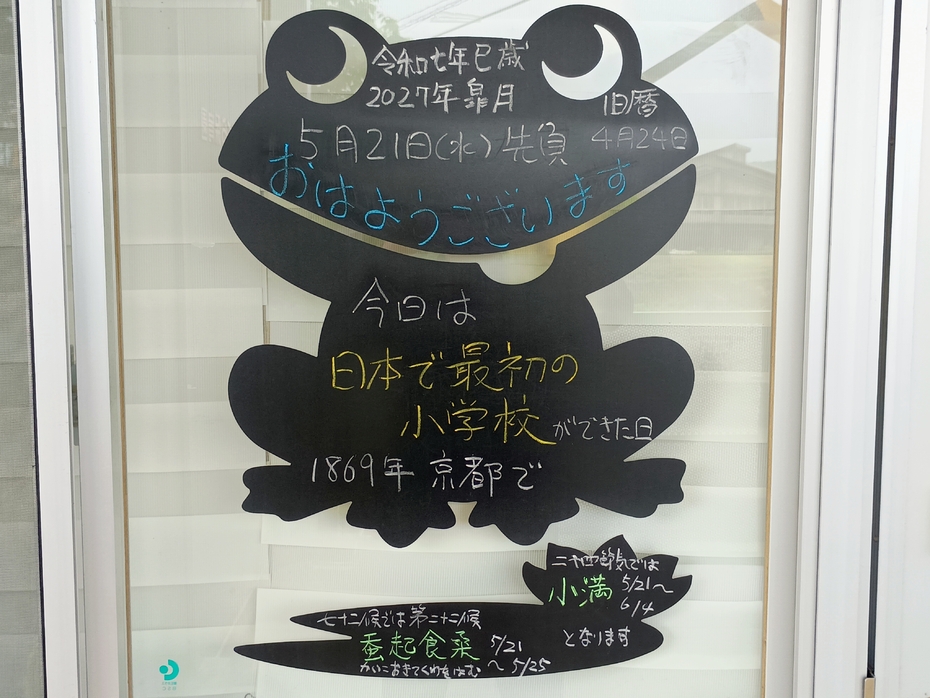 令和七年巳歳
2027年皐月
旧暦
4月24日
5月21日(水)先負
おはようございます
今日は
日本で最初の
小学校ができた日
1869年 京都で
二十四節気では
小満 5/21〜
6/4
となります
七十二候では第二十二候
蚕起食桑 5/21
〜5/25
かいこおきてくわをはむ